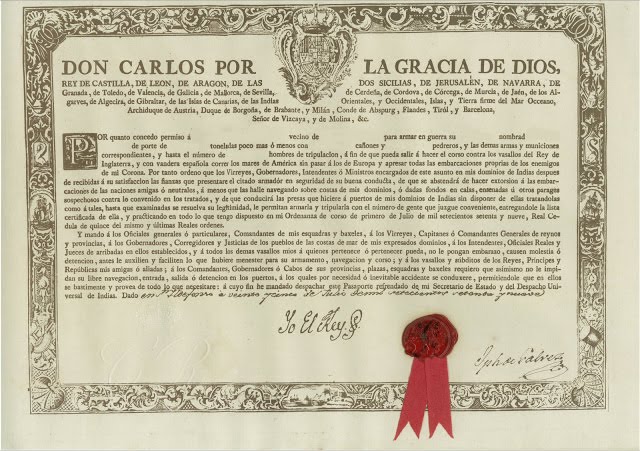 DON CARLOS POR LA GRACIA DE DIOS,
REY DE CASTILLA, DE LEON, DE ARAGON, DE LAS DOS SICILIAS, DE JERUSALÉN, DE NAVARRA, DE
Granada, de Toledo, de Valencia, de Galicia, de Mallorca, de Sevilla, de Cerdeña, de Cordova, de Córcega, de Murcia, de Jaén, de los Al-
garves, de Algecira, de Gibraltar, de las Islas de Canarias, de las Indias Orientales, y Occidentales, Islas, y Tierra firme del Mar Occeano,
Archiduque de Austria, Duque de Borgoña, de Brabante, y Milán, Conde de Abspurg, Flandes, Tiról, y Barcelona,
Señor de Vizcaya, y de Molina, &c.
POR quanto concedo permiso á vecino de para armar en guerra su nombrad
de porte de toneladas poco mas ó menos con cañones y pedreros, y las demas armas y municiones
correspondientes, y hasta el número de hombres de tripulacion, á fin de que pueda salir á hacer el corso contra los vasallos del Rey de
Inglaterra, y con vandera española corra los mares de América sin pasar á los de Europa y apresar todas las embarcaciones propias de los enemigos
de mi Corona. Por tanto ordeno que los Virreyes, Gobernadores, Intendentes ó Ministros encargados de este asunto en mis dominios de Indias despues
de recibidas á su satisfaccion las fianzas que presentare el citado armador en seguridad de su buena conducta, de que se abstendrá de hacer extorsion á las embar-
caciones de naciones amigas ó neutrales, á menos que las halle navegando sobre costas de mis dominios, ó dadas fondos en calas, ensenadas ú otros parages
sospechosos contra lo convenido en los tratados, y de que conducirá las presas que hiciere á puertos de mis dominios de Indias sin disponer de ellas tratandolas
como á tales, hasta que examinadas se resuelva su legitimidad, le permitan armarla y tripularla con el número de gente que juzgue conveniente, entregandole la lista
certificada de ella, y prácticando en todo lo que tengo dispuesto en mi Ordenanza de corso de primero de Julio de mil setecientos setenta y nueve, Real Ce-
dula de quince del mismo y ultimas Reales ordenes.
Y mando á los Oficiales generales ó particulares, Comandantes de mis esquadras y baxeles, á los Virreyes, Capitanes ó Comandantes Generales de reynos
y provincias, á los Gobernadores, Corregidores y Justicias de los pueblos de las costas de mar de mis expresados dominios, á los Intendentes, Oficiales Reales y
Jueces de arribadas en ellos establecidos, y á todos los demas vasallos mios á quienes pertenece ó pertenecer pueda, no le pongan embarazo, causen molestia ó
detencion, antes le auxilien y faciliten lo que hubiere menester para su armamento, navegacion y corso; y á los vasallos y súbditos de los Reyes, Príncipes y
Repúblicas mis amigos ó aliadas; á los Comandantes, Gobernadores ó Cabos de sus provincias, plazas, esquadras y baxeles requiero que asimismo no le impi-
dan su libre navegacion, entrada, salida ó detencion en los puertos, á los quales de mar ó por necesidad ó inevitable accidente se conduxere, permitiendole que en ellos
se bastimente y provea de todo lo que necesitare: á cuyo fin he mandado despachar este Pasaporte refrendado de mi Secretario de Estado y del Despacho
Universal de Indias. Dado en Sn Ildefonso a veinte y cinco de Julio de mil setecientos setenta y nueve
Yo El Rey
Joph de Gálvez